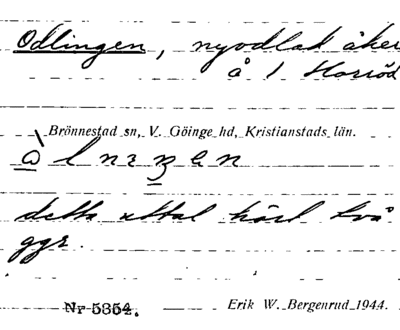 Odlingen, nyodlad åker
å 1 Horröd
Brönnestad sn, V. Göinge hd, Kristianstads län.
detta uttal hört två
ggr.
Nr 5354. Erik W. Bergenrud 1944.